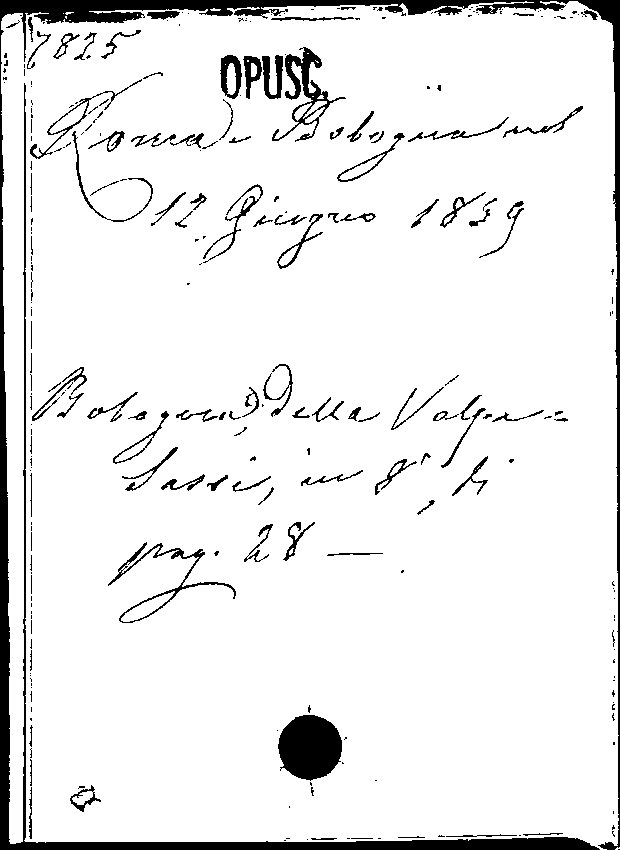 7825
OPUSC.
Roma e Bologna nel
12 Giugno 1859
Bologna, della Volpe =
Sassi, in 8°, di
pag. 28 —